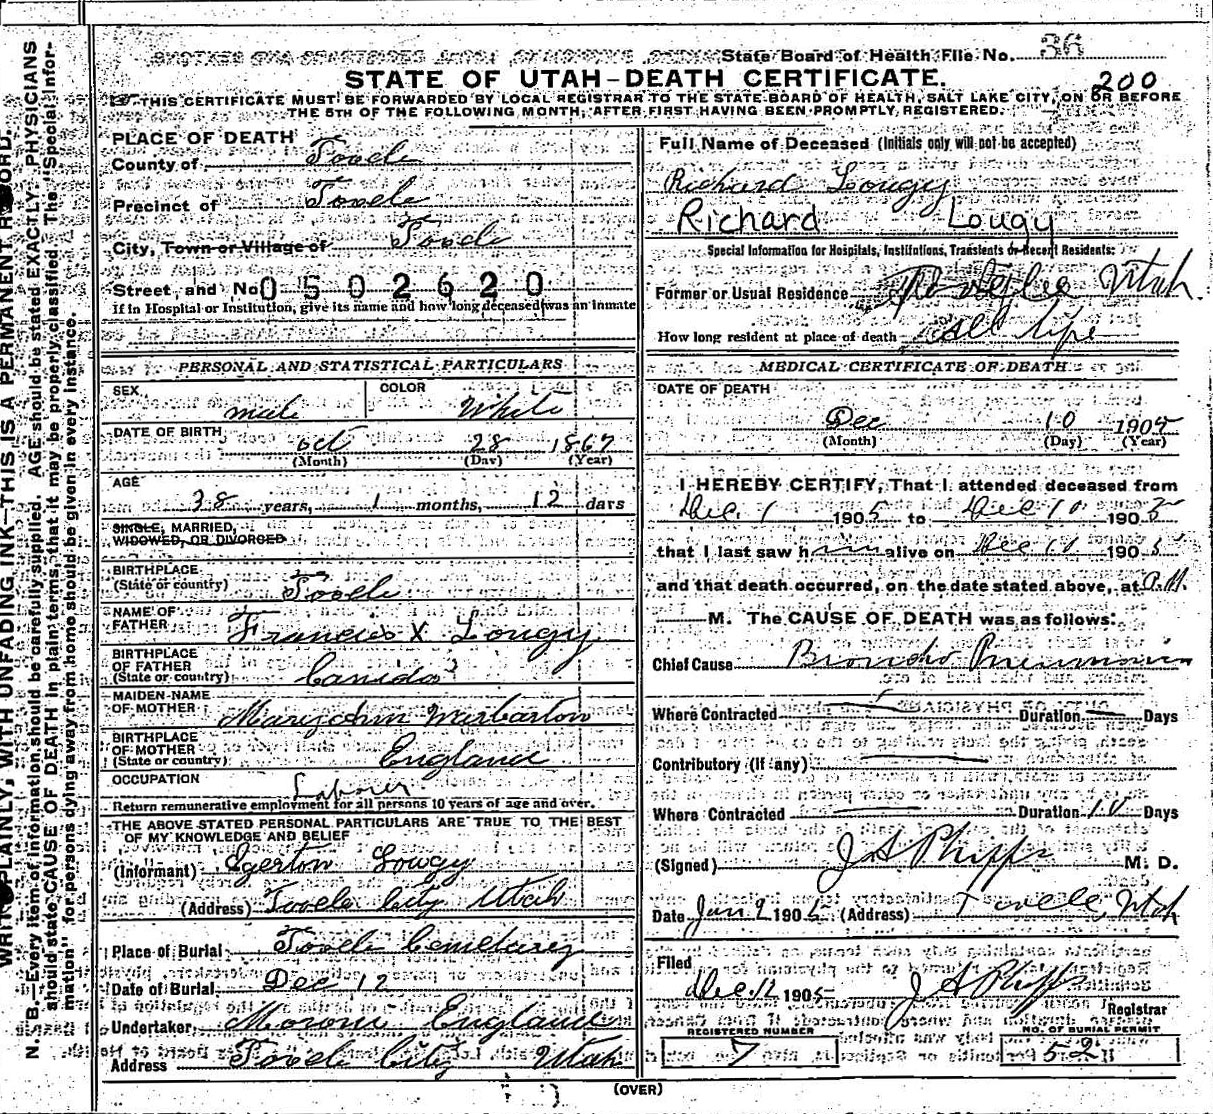 State Board of Health File No. 36
STATE OF UTAH–DEATH CERTIFICATE.
200
THIS CERTIFICATE MUST BE FORWARDED BY LOCAL REGISTRAR TO THE STATE BOARD OF HEALTH, SALT LAKE CITY, ON OR BEFORE
THE 5TH OF THE FOLLOWING MONTH, AFTER FIRST HAVING BEEN PROMPTLY REGISTERED.
WRITE PLAINLY, WITH UNFADING INK–THIS IS A PERMANENT RECORD.
N. B.–Every item of information should be carefully supplied. AGE should be stated EXACTLY. PHYSICIANS
should state CAUSE OF DEATH in plain terms, that it may be properly classified. The "Special Infor-
mation" for persons dying away from home should be given in every instance.
PLACE OF DEATH
County of Tooele
Precinct of Tooele
City, Town or Village of Tooele
Street and No. 0502620
If in Hospital or Institution, give its name and how long deceased was an inmate
PERSONAL AND STATISTICAL PARTICULARS
SEX male COLOR White
DATE OF BIRTH oct 28 1867
(Month) (Day) (Year)
AGE
38 years, 1 months, 12 days
SINGLE, MARRIED,
WIDOWED, OR DIVORCED
BIRTHPLACE
(State or country) Tooele
NAME OF
FATHER Francis X Lougy
BIRTHPLACE
OF FATHER
(State or country) Canida
MAIDEN NAME
OF MOTHER Mary ann Warbarton
BIRTHPLACE
OF MOTHER
(State or country) England
OCCUPATION Labour
Return remunerative employment for all persons 10 years of age and over.
THE ABOVE STATED PERSONAL PARTICULARS ARE TRUE TO THE BEST
OF MY KNOWLEDGE AND BELIEF
(Informant) Egerton Lougy
(Address) Tooele City Utah
Place of Burial Tooele Cemetarey
Date of Burial Dec 12
Undertaker Moroni England
Address Tooel City Utah
Full Name of Deceased (Initials only will not be accepted)
Richard Lougy
Richard Lougy
Special Information for Hospitals, Institutions, Transients or Recent Residents:
Former or Usual Residence Utah
How long resident at place of death all life
MEDICAL CERTIFICATE OF DEATH
DATE OF DEATH
Dec 10 1905
(Month) (Day) (Year)
I HEREBY CERTIFY, That I attended deceased from
Dec. 1 1905 to Dec 10 1905
that I last saw him alive on Dec 10 1905
and that death occurred, on the date stated above, at A.M.
M. The CAUSE OF DEATH was as follows:
Chief Cause Broncho Pneumonia
Where Contracted Duration Days
Contributory (If any)
Where Contracted Duration 10 Days
(Signed) J A Phipps M. D.
Date Jan 9 190 (Address) Tooele, Utah
Filed
Dec. 12 1905 J A Phipps
Registrar
REGISTERED NUMBER
7
NO. OF BURIAL PERMIT
52
(OVER)